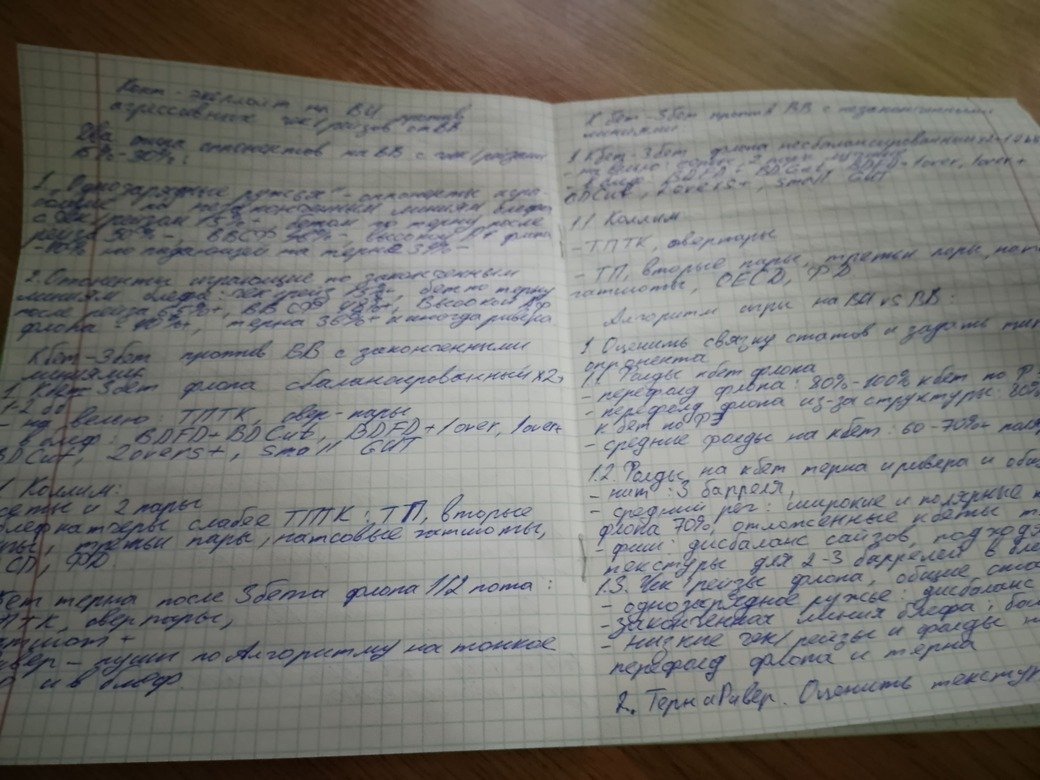 Конт-эксплоит на BU против
агрессивных чек/рейзов от BB
Два типа оппонентов на BB с чек/рейзом
15%-30%:
1. Однозарядные ружья - оппоненты
по незаконченным линиям блефа
с чек/рейзом 15%+ бетом по терну после
рейза 50%-, высокий AF флопа
40% но падающий на терне 35%-
2. Оппоненты играющие по законченным
линиям блефа: чек/рейз бет по терну
после рейза 65%+, BB CФ, Высокий AF
флопа - 40%+, терна 36%+ и иногда ривера
Кбет-3бет против BB с законченными
линиями
1 Кбет-3бет флопа сбалансированный х2,
1-2 бб
- на велью: ТПТК, овер-пары
в блеф: BDFD+BDGut, BDFD+1over, 1over+
BDGut, 2overs+, small GUT
Коллим:
сеты и 2 пары
блефкатчеры слабее ТПТК: ТП, вторые
пары, третьи пары, натсовые гатшоты,
СД, ФД
бет терна после 3бета флопа 1/2 пота:
ТПТК, оверпары,
гатшот+
ривер - пуши по Алгоритму на тонкое
и в блеф.
Кбет-3бет против BB с незаконченными
линиями
1 Кбет-3бет флопа несбалансированный
- на велью: сеты, 2 пары
BDFD+BDGut, BDFD+1over, 1over+
BDGut, 2overs+, small GUT
1.1 Коллим
- ТПТК, оверпары
- ТП, вторые пары, третьи пары, нат
гатшоты, ФД
Алгоритм игры на BU vs BB:
1 Оценить связку статов и задать тип
оппонента
1.1 Фолды кбет флопа
- перефолд флопа: 80%-100% кбет по
- перефолд флопа из-за структуры: 80%
кбет по
- средние фолды на кбет: 60-70%+ поляр
1.2. Фолды на кбет терна и ривера и общ
- нит: 3 барреля,
- средний рег: широкие и полярные к
флопа 70%, отложенные кбеты т
- фиш: дисбаланс сайзов, подход
текстуры для 2-3 баррелей в бле
1.3. Чек/рейзы флопа, общие ста
- однозарядное ружье: дисбаланс
- законченная линия блефа:
- низкие чек/рейзы и фолды
перефолд флопа и терна
2. Терн и Ривер. Оценить текстур